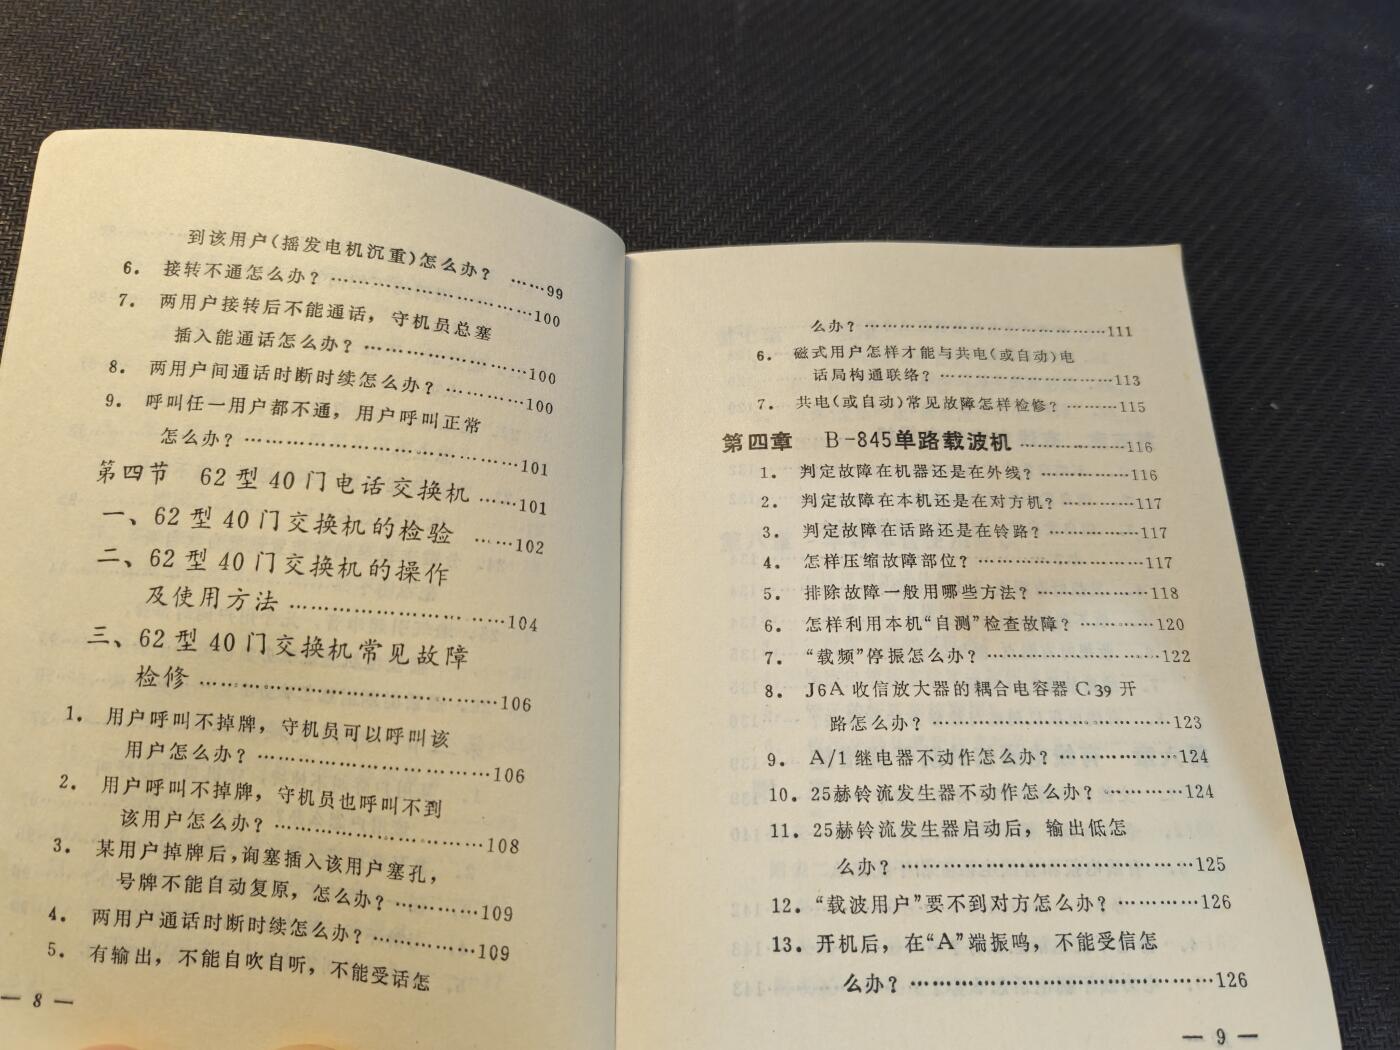 到该用户(摇发电机沉重)怎么办? ……99
6. 接转不通怎么办? ……………………………100
7. 两用户接转后不能通话, 守机员总塞
插入能通话怎么办? …………………100
8. 两用户间通话时断时续怎么办? …………100
9. 呼叫任一用户都不通, 用户呼叫正常
怎么办? ……………………………………101
第四节 62型40门电话交换机……101
一、62型40门交换机的检验 ……102
二、62型40门交换机的操作
及使用方法……………………104
三、62型40门交换机常见故障
检修………………………………106
1. 用户呼叫不掉牌, 守机员可以呼叫该
用户怎么办? …………………………106
2. 用户呼叫不掉牌, 守机员也呼叫不到
该用户怎么办? ………………………108
3. 某用户掉牌后,询塞插入该用户塞孔,
号牌不能自动复原, 怎么办? …………109
4. 两用户通话时断时续怎么办? …………109
5. 有输出, 不能自吹自听, 不能受话怎
— 8 —
么办? …………………………………111
6. 磁式用户怎样才能与共电(或自动)电
话局构通联络? ………………………113
7. 共电(或自动)常见故障怎样检修? ………115
第四章 B-845单路载波机…………………116
1. 判定故障在机器还是在外线? ……………116
2. 判定故障在本机还是在对方机? …………117
3. 判定故障在话路还是在铃路? ……………117
4. 怎样压缩故障部位? ………………………117
5. 排除故障一般用哪些方法? ………………118
6. 怎样利用本机“自测”检查故障? …………120
7. “载频”停振怎么办? ………………………122
8. J6A收信放大器的耦合电容器C39开
路怎么办? ………………………………123
9. A/1继电器不动作怎么办? ………………124
10. 25赫铃流发生器不动作怎么办? …………124
11. 25赫铃流发生器启动后, 输出低怎
么办? ……………………………………125
12. “载波用户”要不到对方怎么办? …………126
13. 开机后, 在“A”端振鸣, 不能受信怎
么办? ……………………………………126
— 9 —